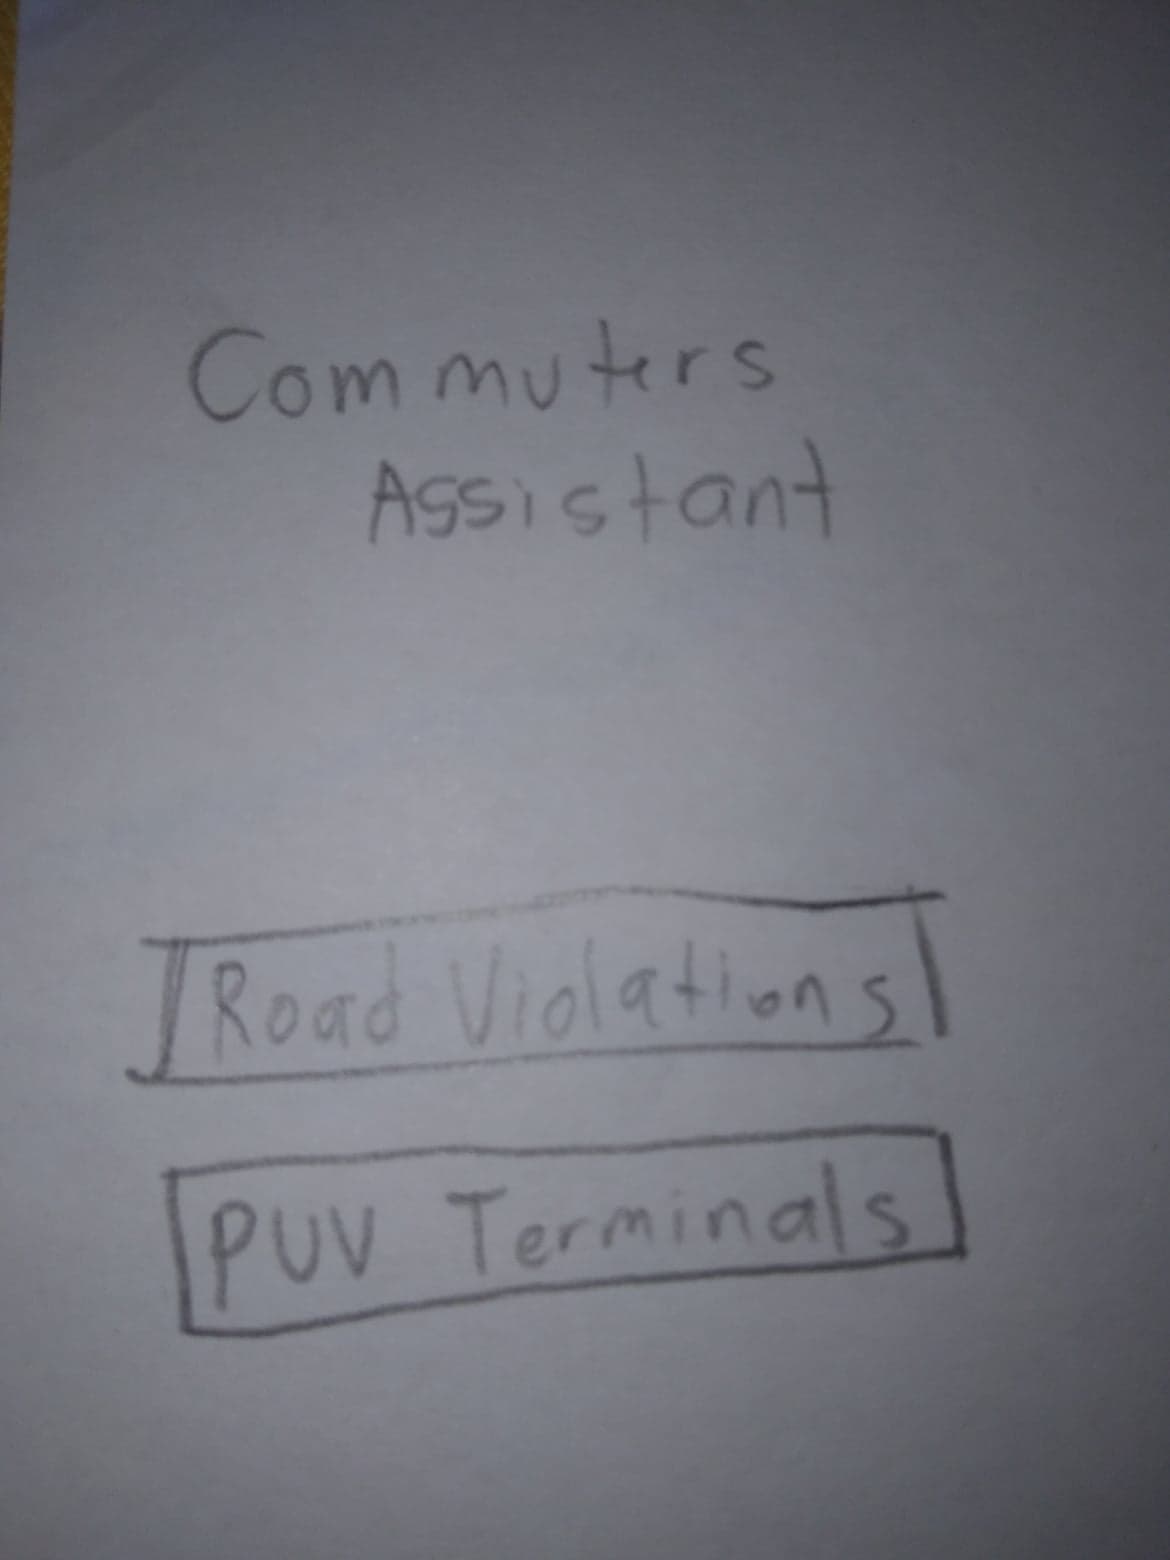 Commuters
Assistant
Road Violations
PUV Terminals